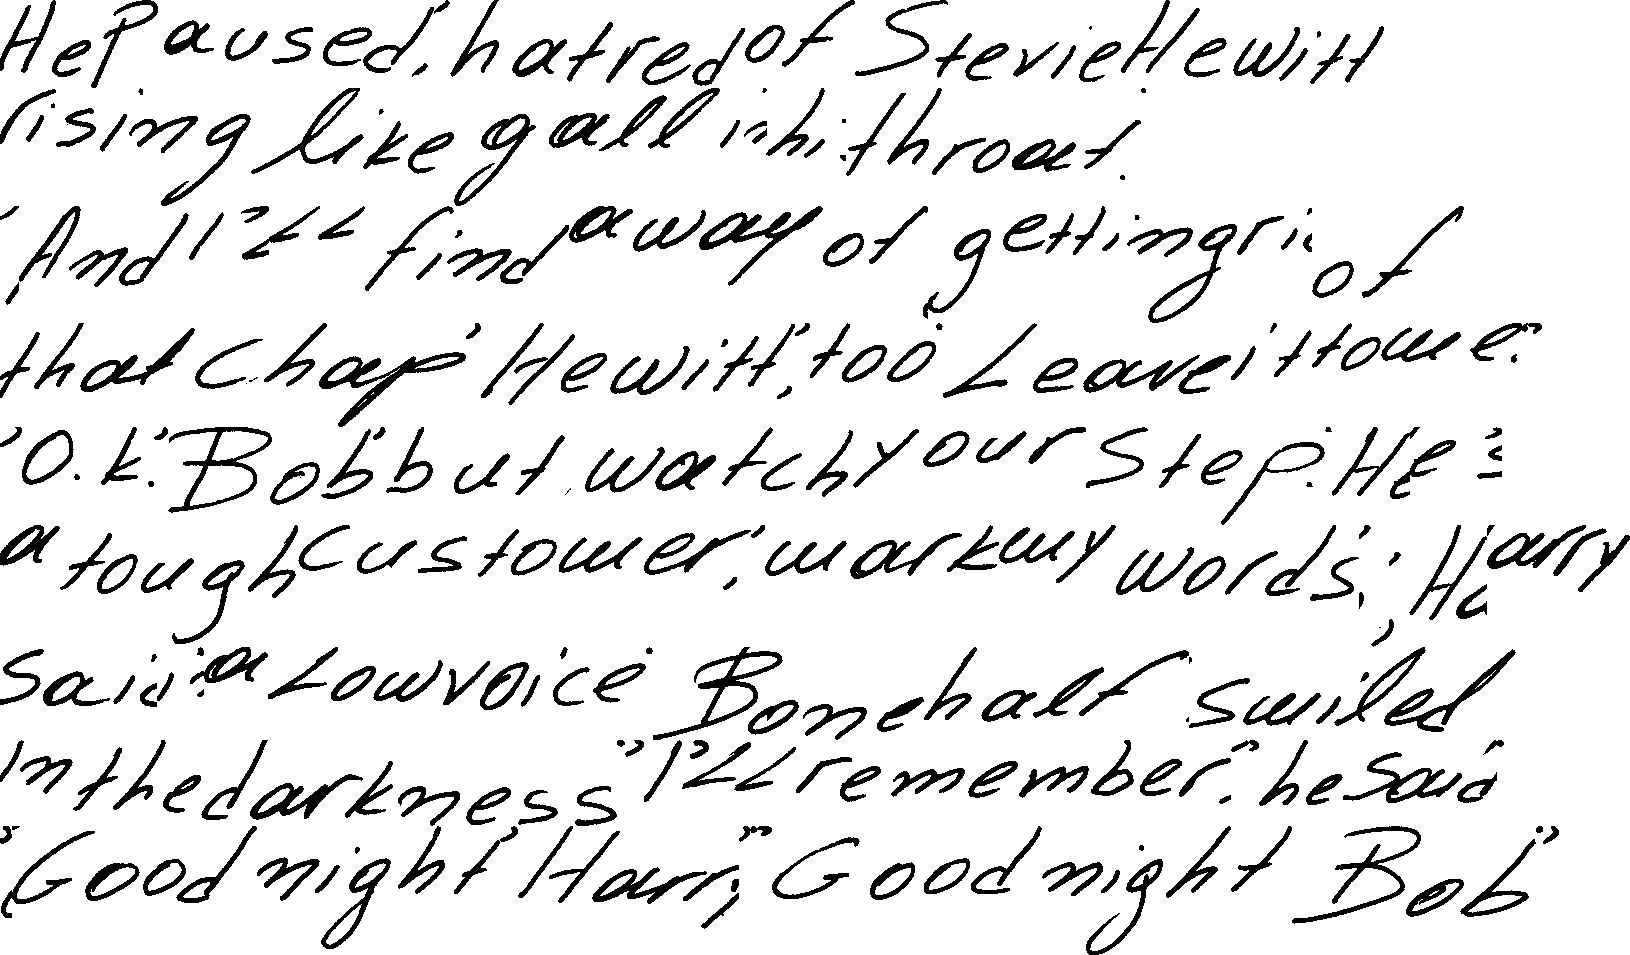 He paused, hatred of Stevie Hewitt
rising like gall in his throat.
"And I'll find a way of getting rid of
that chap Hewitt, too. Leave it to me."
"O.k. Bob but watch your step. He's
a tough customer, mark my words," Harry
said in a low voice. Bonehalf smiled
in the darkness. "I'll remember." he said
"Good night Harry," "Good night Bob"